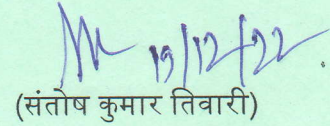 19/12/22
(संतोष कुमार तिवारी)